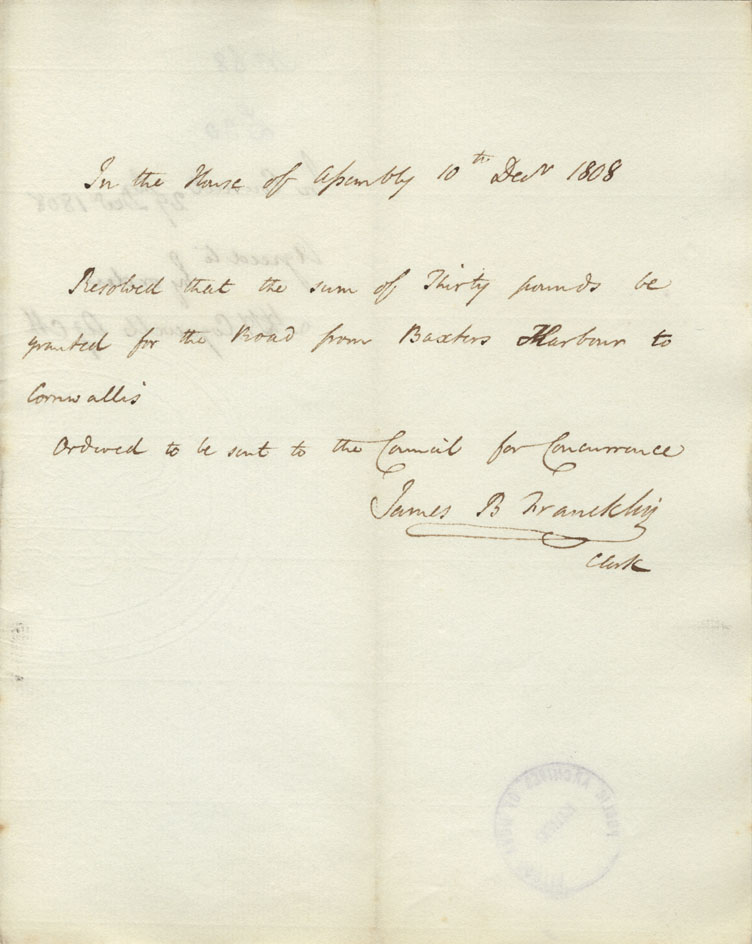 In the House of Assembly 10th Decr 1808
Resolved that the sum of Thirty pounds be
granted for the Road from Baxters Harbour to
Cornwallis
Ordered to be sent to the Council for Concurrence
James B Franckliŋ
Clerk
PUBLIC ARCHIVES OF NOVA SCOTIA